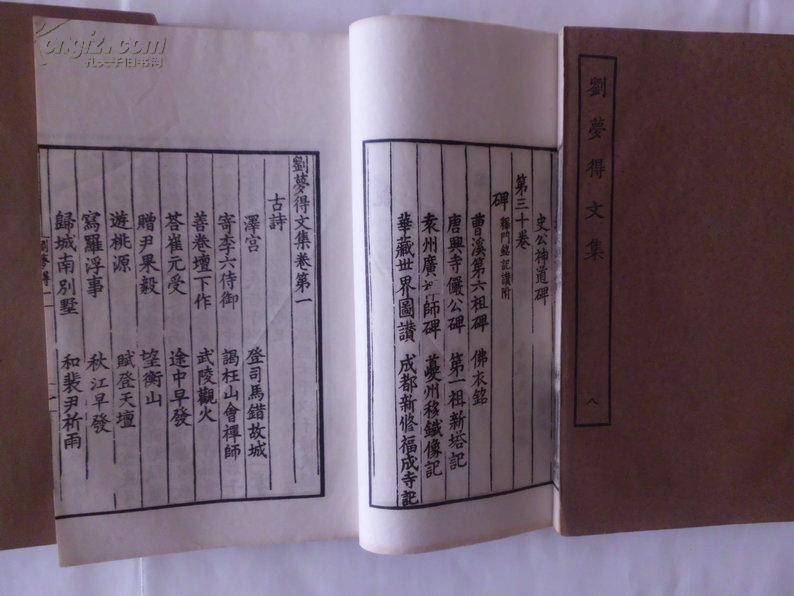 劉夢得文集
八
史公神道碑
第三十卷
碑 釋門銘記讚附
曹溪第六祖碑 佛衣銘
唐興寺儼公碑 第一祖新塔記
袁州廣 師碑 夔州移鐵像記
華藏世界圖讃 成都新修福成寺記
劉夢得文集卷第一
古詩
澤宮 登司馬錯故城
寄李六侍御 謁枉山會禪師
善卷壇下作 武陵觀火
荅崔元受 途中早發
贈尹果毅 望衡山
遊桃源 賦登天壇
寫羅浮事 秋江早發
歸城南別墅 和裴尹祈雨
劉夢得一
一
Kongfz.com
孔夫子旧书网